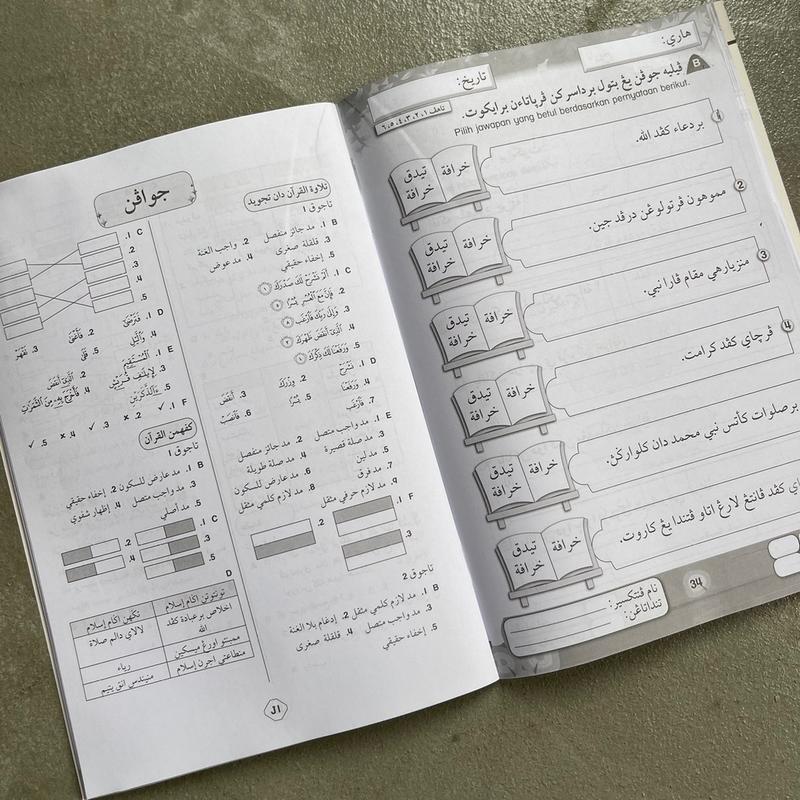 هاري:
تاريخ:
B ڤيليه جوڤن يڠ بتول برداسركن ڤرڽاتاءن بريكوت.
Pilih jawapan yang betul berdasarkan pernyataan berikut.
1 بردعاء كڤد الله.
خرافة
تيدق خرافة
2 مموهون ڤرتولوڠن درڤد جين.
خرافة
تيدق خرافة
3 منزيارهي مقام ڤارا نبي.
خرافة
تيدق خرافة
4 ڤرچاي كڤد كرامت.
خرافة
تيدق خرافة
برصلوات كأتس نبي محمد دان كلوارڬڽ.
خرافة
تيدق خرافة
كڤد ڤانتڠ لارڠ اتاو ڤتندا يڠ كاروت.
خرافة
تيدق خرافة
34
نام ڤنتكسير:
تنداتاڠن:
جواڤن
تلاوة القرآن دان تجويد
تاجوق 1
B 1. مد جائز منفصل 2. واجب الغنة
3. قلقلة صغرى 4. مد عوض
5. إخفاء حقيقي
C 1. أَلَمْ نَشْرَحْ لَكَ صَدْرَكَ
2. فَإِنَّ مَعَ الْعُسْرِ يُسْرًا
3. وَإِلَىٰ رَبِّكَ فَارْغَب
4. الَّذِي أَنقَضَ ظَهْرَكَ
5. وَرَفَعْنَا لَكَ ذِكْرَكَ
D 1. نَشْرَحْ 2. وِزْرَكَ 3. أَنقَضَ
4. وَرَفَعْنَا 5. يُسْرًا 6. فَانصَبْ
7. فَارْغَب
E 1. مد واجب متصل 2. مد جائز منفصل
3. مد صلة قصيرة 4. مد صلة طويلة
5. مد لين 6. مد عارض للسكون
7. مد فرق 8. مد لازم كلمي مثقل
9. مد لازم حرفي مثقل
F 1.
2.
3.
تاجوق 2
B 1. مد لازم كلمي مثقل 2. إدغام بلا الغنة
3. مد واجب متصل 4. قلقلة صغرى
5. إخفاء حقيقي
C 1.
2.
3.
4.
5.
D 1. فَتَرْضَىٰ 2. فَأَغْنَىٰ 3. تَقْهَرْ
4. وَالَّيْلِ 5. قَلَىٰ
E 1. الْمُسْتَقِيمَ 2. الَّذِي أَنقَضَ
3. لِإِيلَافِ قُرَيْشٍ 4. فَأَخْرَجَ بِهِ مِنَ الثَّمَرَاتِ
5. ءَالذَّكَرَيْنِ
F 1. ✓ 2. ✗ 3. ✓ 4. ✗ 5. ✓
كفهمن القرآن
تاجوق 1
B 1. مد عارض للسكون 2. إخفاء حقيقي
3. مد واجب متصل 4. إظهار شفوي
5. مد أصلي
C 1.
2.
3.
4.
5.
D
تونتوتن اڬام إسلام
تݢهن اڬام إسلام
اخلاص برعبادة كڤد الله
لالاي دالم صلاة
ممبنتو اورڠ ميسكين
رياء
منطاعتي اجرن إسلام
منيندس انق يتيم
J1